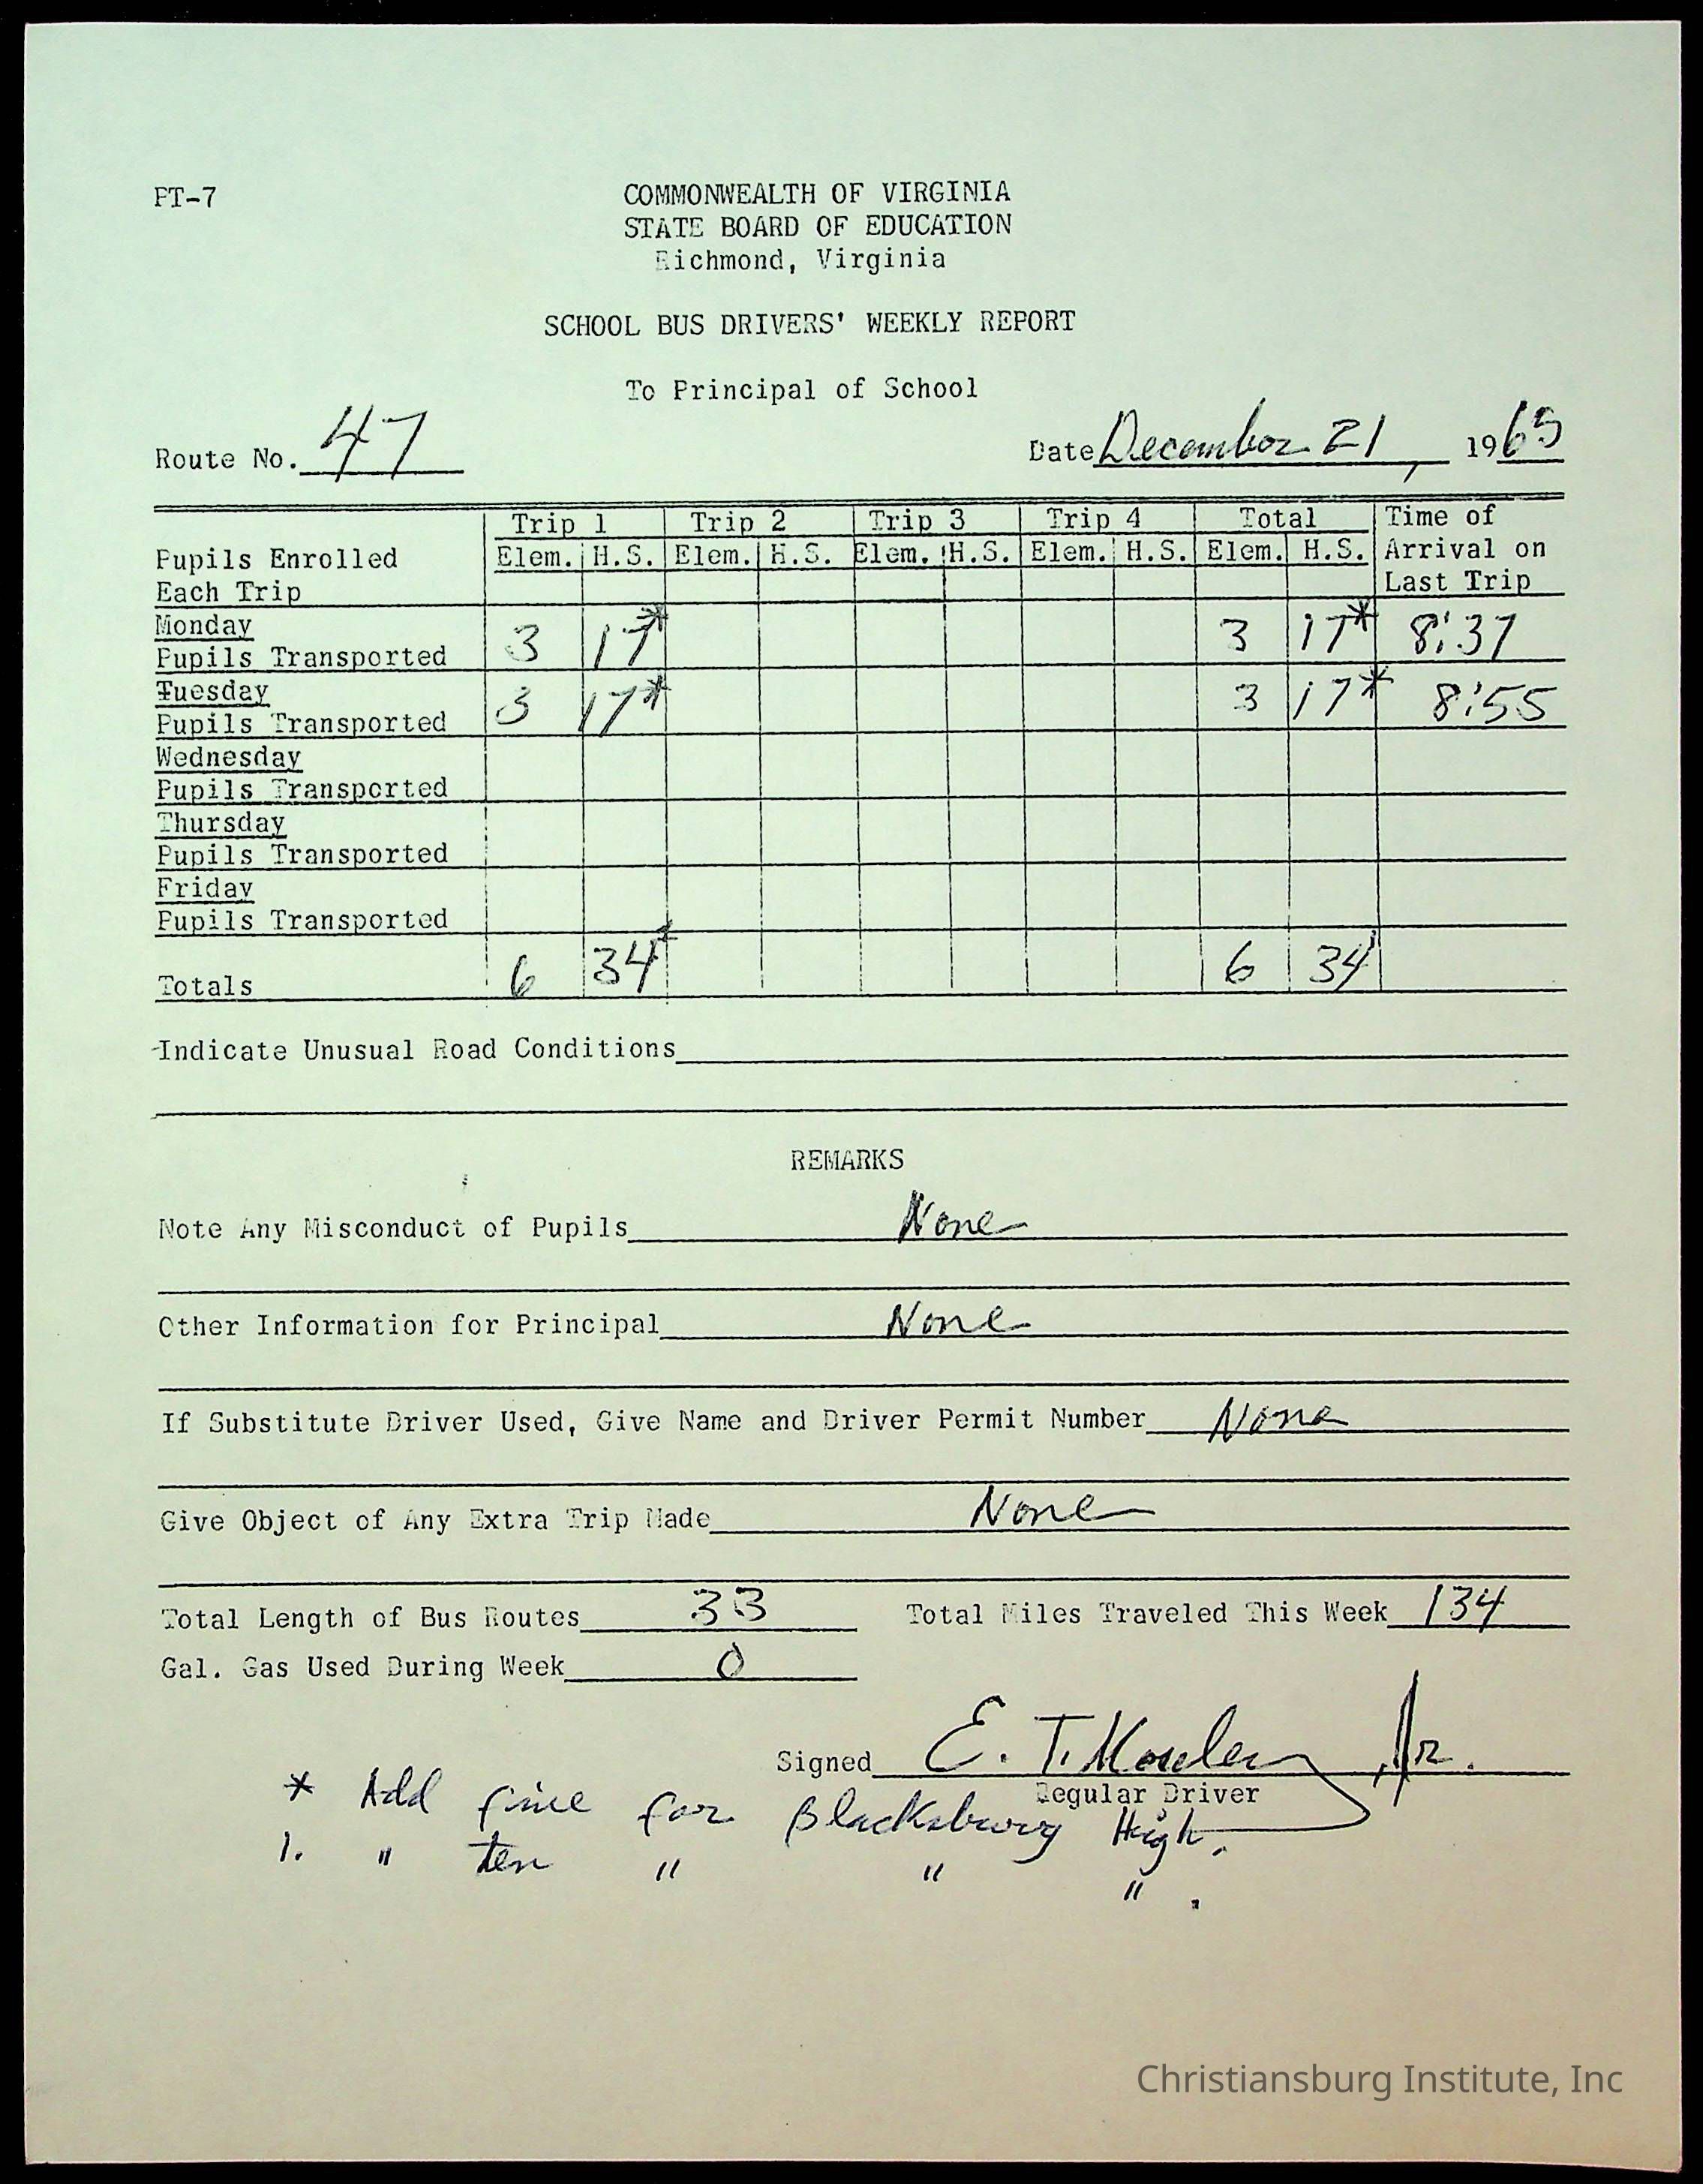 FT-7
COMMONWEALTH OF VIRGINIA
STATE BOARD OF EDUCATION
Richmond, Virginia
SCHOOL BUS DRIVERS' WEEKLY REPORT
To Principal of School
Route No. 47 Date December 21, 1965
Trip 1 Trip 2 Trip 3 Trip 4 Total Time of
Pupils Enrolled Elem. H.S. Elem. H.S. Elem. H.S. Elem. H.S. Elem. H.S. Arrival on
Each Trip Last Trip
Monday
Pupils Transported 3 17* 3 17* 8:37
Tuesday
Pupils Transported 3 17* 3 17* 8:55
Wednesday
Pupils Transported
Thursday
Pupils Transported
Friday
Pupils Transported
Totals 6 34 6 34
Indicate Unusual Road Conditions
REMARKS
Note Any Misconduct of Pupils None
Other Information for Principal None
If Substitute Driver Used, Give Name and Driver Permit Number None
Give Object of Any Extra Trip Made None
Total Length of Bus Routes 33 Total Miles Traveled This Week 134
Gal. Gas Used During Week 0
Signed E. T. , Jr.
Regular Driver
* Add five for Blacksburg High.
1. " ten " " " .
Christiansburg Institute, Inc